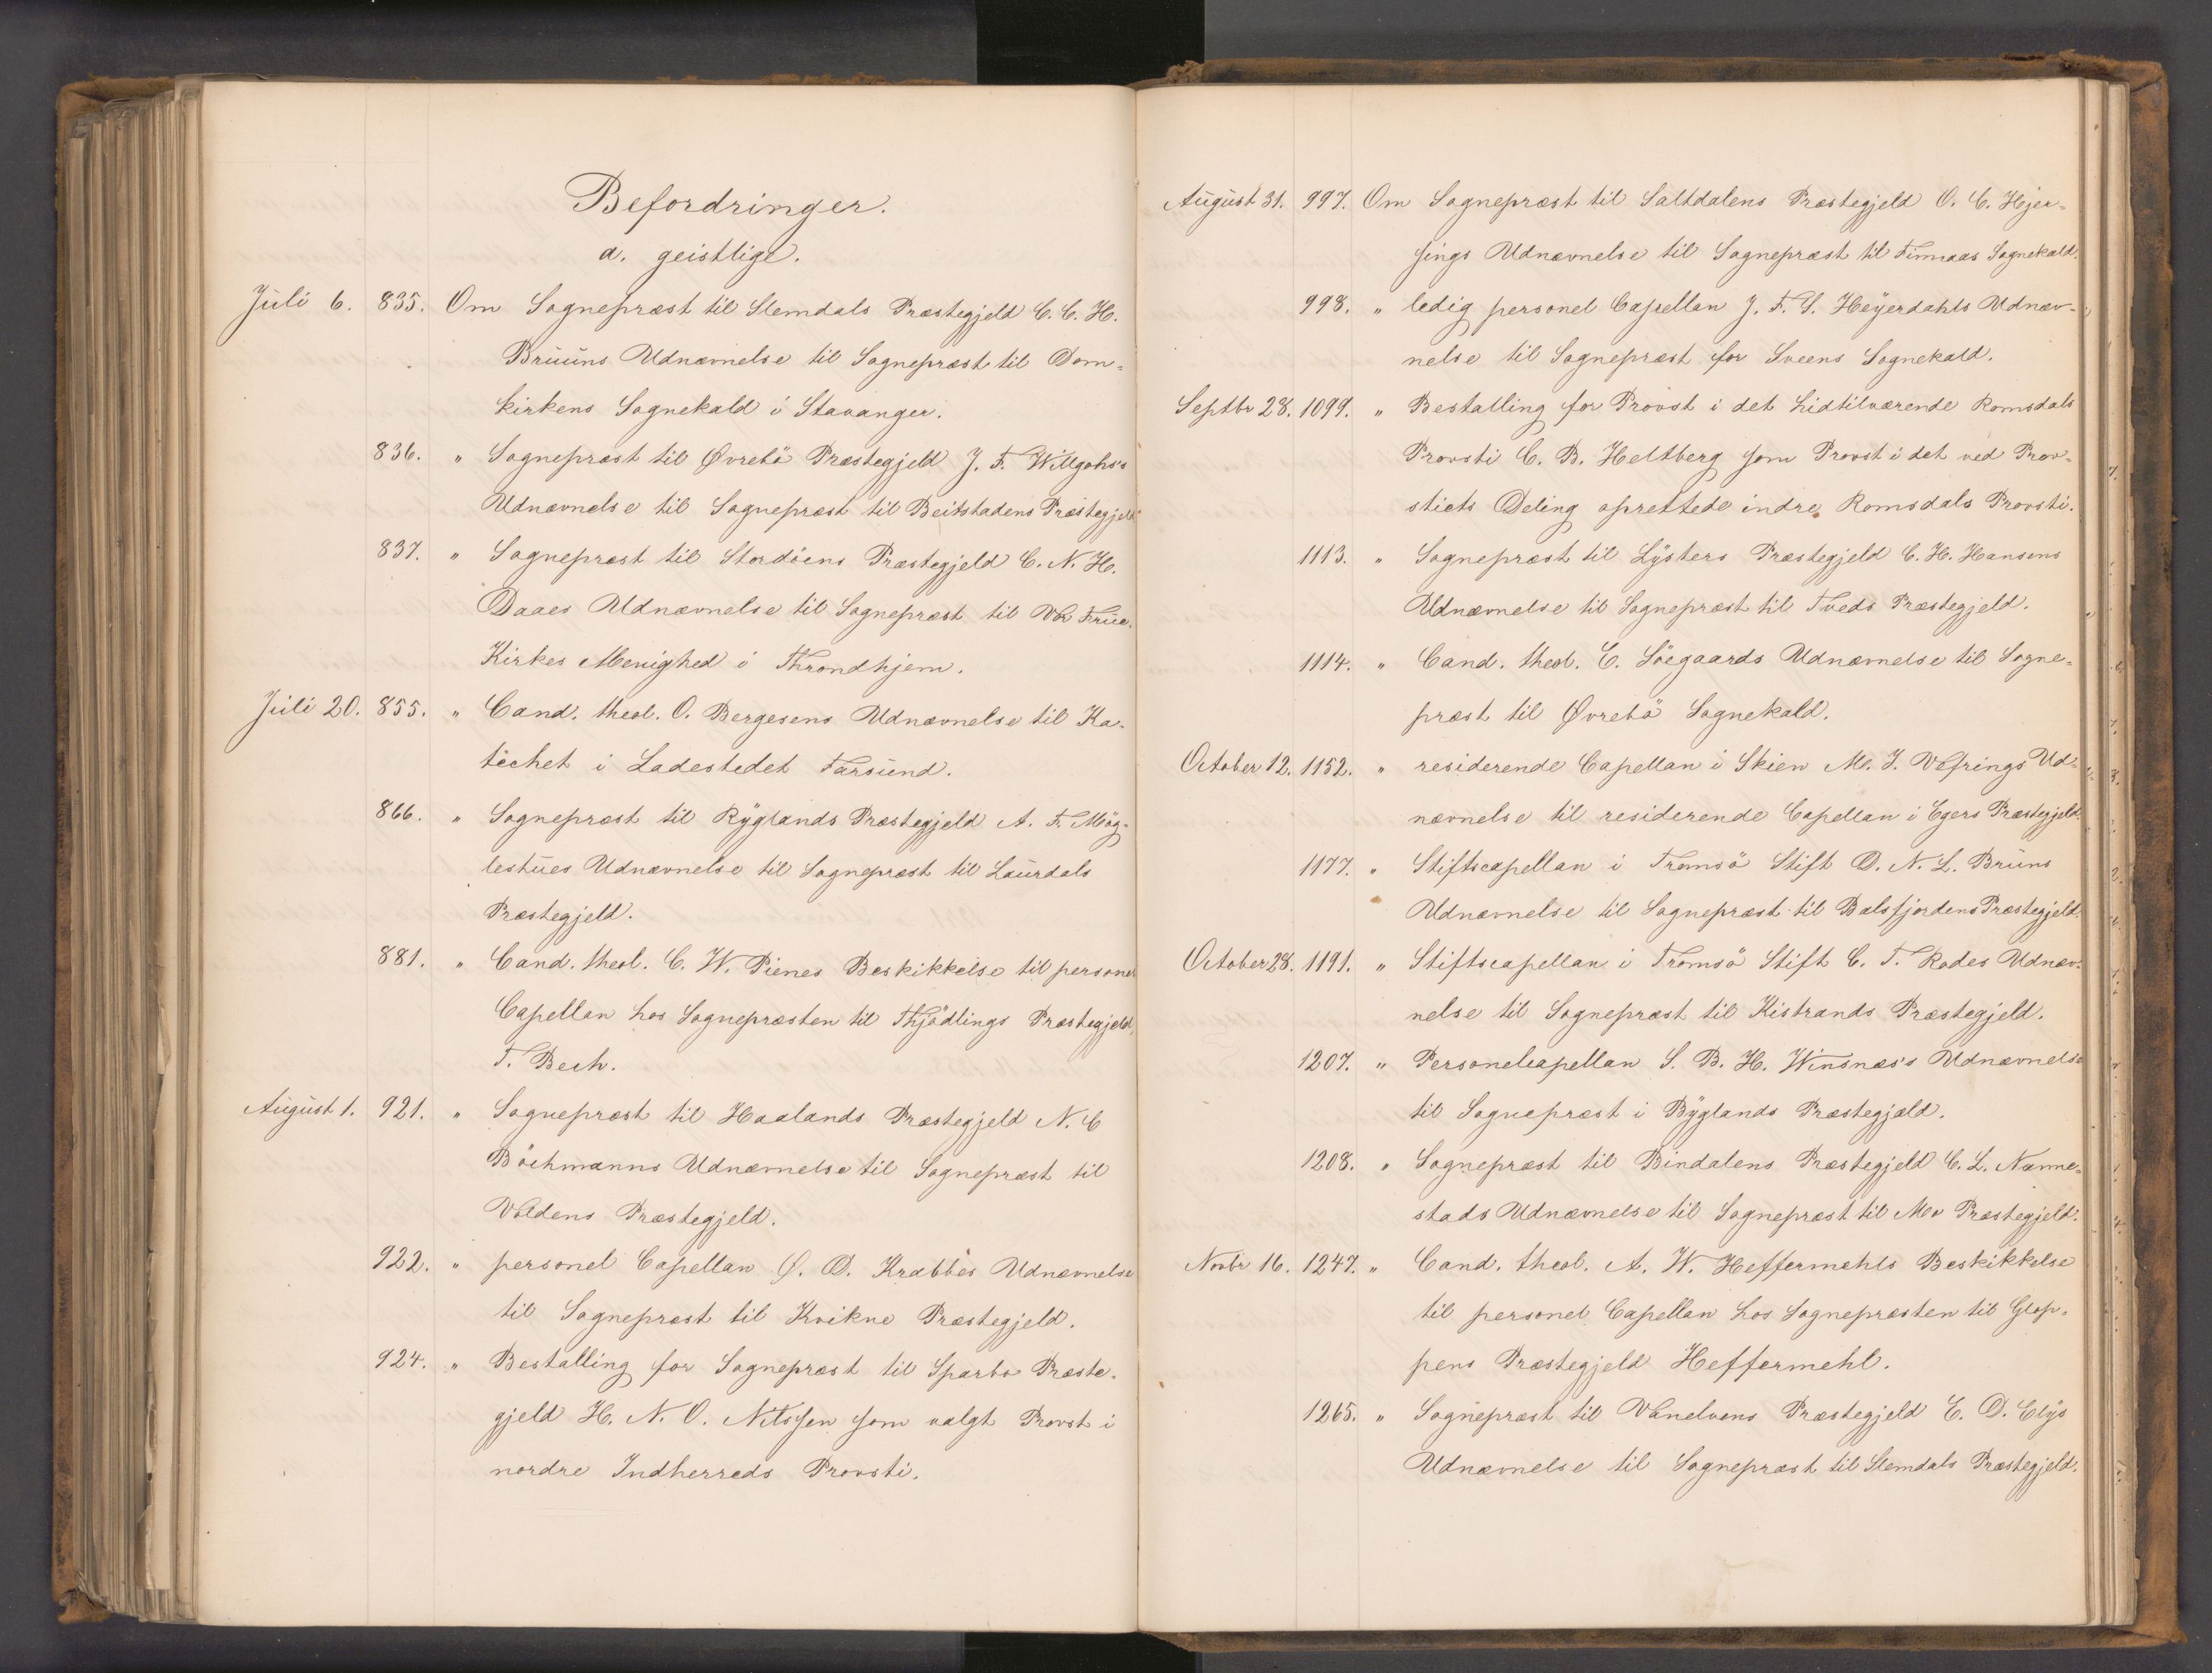 Befordringer.
a. geistlige.
Juli 6. 835. Om Sognepræst til Slemdals Præstegjeld C. C. H.
Bruuns Udnævnelse til Sognepræst til Dom-
kirkens Sognekald i Stavanger.
836. " Sognepræst til Øvrebö Præstegjeld J. F. Willgohs's
Udnævnelse til Sognepræst til Beitstadens Præstegjeld
837. " Sognepræst til Stordöens Præstegjeld C. N. H.
Daaes Udnævnelse til Sognepræst til Vor Frue
Kirkes Menighed i Throndhjem.
Juli 20. 855. " Cand. theol. O. Bergesens Udnævnelse til Ka-
techet i Ladestedet Farsund.
866. " Sognepræst til Byglands Præstegjeld A. F. Mög-
lestues Udnævnelse til Sognepræst til Laurdals
Præstegjeld.
881. " Cand. theol. C. W. Pienes Beskikkelse til personel
Capellan hos Sognepræsten til Thjödlings Præstegjeld,
F. Bech.
August 1. 921. " Sognepræst til Haalands Præstegjeld N. C
Böchmanns Udnævnelse til Sognepræst til
Voldens Præstegjeld.
922. " personel Capellan O. D. Krabbes Udnævnelse
til Sognepræst til Kvikne Præstegjeld.
924. " Bestalling for Sognepræst til Sparbo Præste-
gjeld H. N. O. Nilssen som valgt Provst i
nordre Indherreds Provsti.
August 31. 997. Om Sognepræst til Saltdalens Præstegjeld O. C. Hjer-
sings Udnævnelse til Sognepræst til Finnaas Sognekald.
998. " ledig personel Capellan J. F. S. Heyerdahls Udnæv-
nelse til Sognepræst for Sveens Sognekald.
Septbr 28. 1099. " Bestalling for Provst i det hidtilværende Romsdals
Provsti C. B. Heltberg som Provst i det ved Prov-
stiets Deling oprettede indre Romsdals Provsti.
1113. " Sognepræst til Lysters Præstegjeld C. H. Hansens
Udnævnelse til Sognepræst til Tveds Præstegjeld.
1114. " Cand. theol. C. Söegaards Udnævnelse til Sogne-
præst til Øvrebö Sognekald.
October 12. 1152. " residerende Capellan i Skien M. J. Vefrings Ud-
nævnelse til residerende Capellan i Egers Præstegjeld.
1177. " Stiftscapellan i Tromsö Stift D. N. L. Bruns
Udnævnelse til Sognepræst til Balsfjordens Præstegjeld.
October 28. 1191. " Stiftscapellan i Tromsö Stift C. T. Rodes Udnæv-
nelse til Sognepræst til Kistrands Præstegjeld.
1207. " Personelcapellan S. B. H. Winsnæs's Udnævnelse
til Sognepræst i Byglands Præstegjæld.
1208. " Sognepræst til Bindalens Præstegjeld C. L. Nanne-
stads Udnævnelse til Sognepræst til Mo Præstegjeld.
Novbr 16. 1247. " Cand. theol. A. W. Heffermehls Beskikkelse
til personel Capellan hos Sognepræsten til Glop-
pens Præstegjeld Heffermehl.
1265. " Sognepræst til Vanelvens Præstegjeld E. D. Elys
Udnævnelse til Sognepræst til Slemdals Præstegjeld.